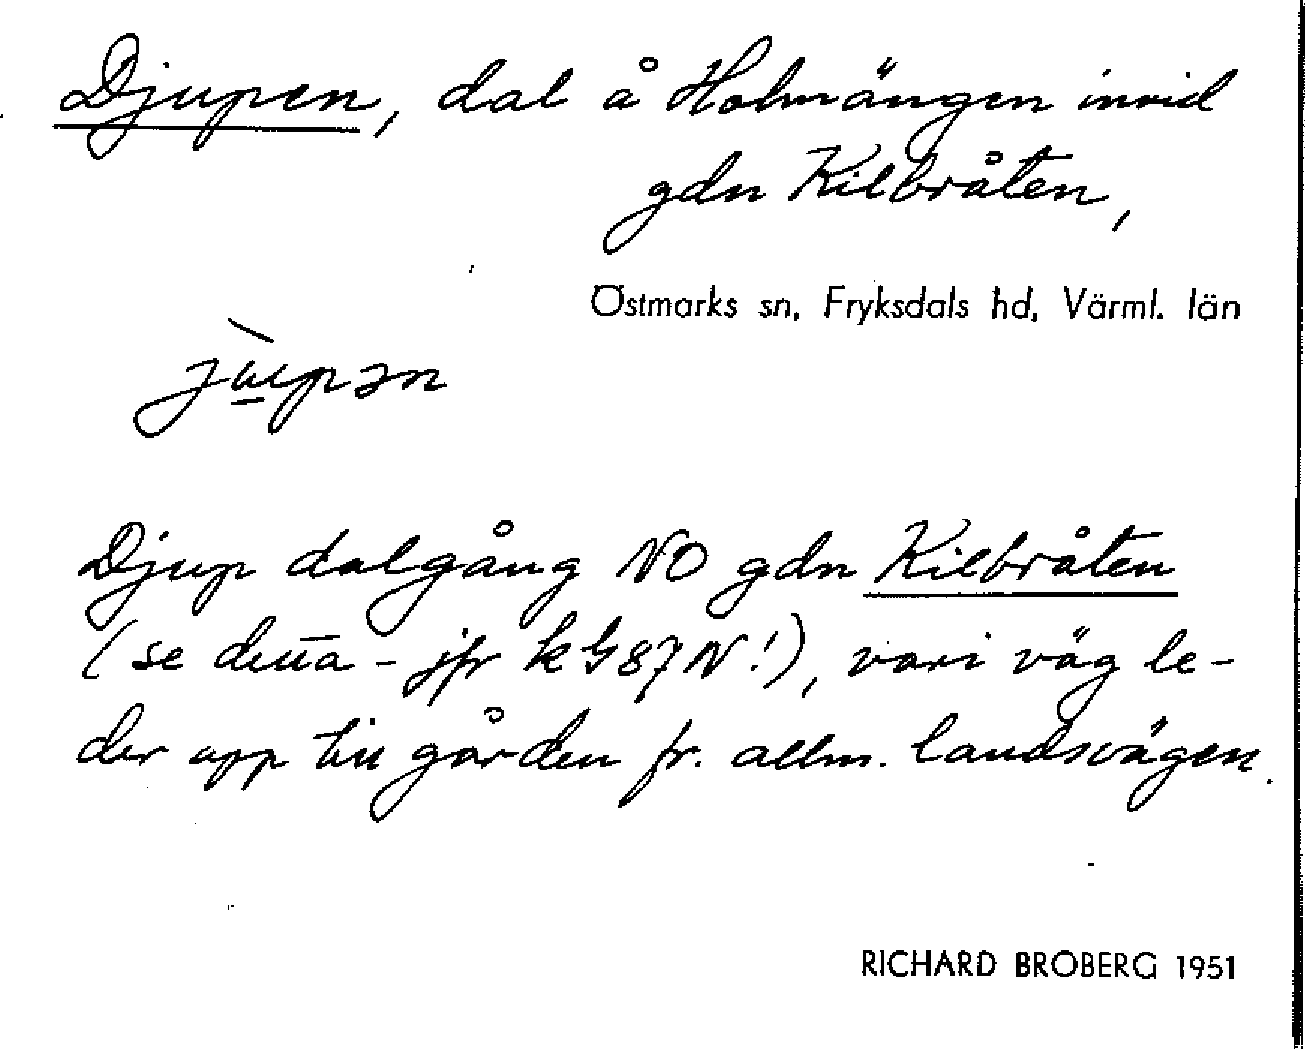 Djupen, dal å Holmängen invid
gdn Kilbråten,
Östmarks sn, Fryksdals hd, Värml. län
Djup dalgång NO gdn Kilbråten
(se detta - jfr k G87N!), vari väg le-
der upp till gården fr. allm. landsvägen.
RICHARD BROBERG 1951